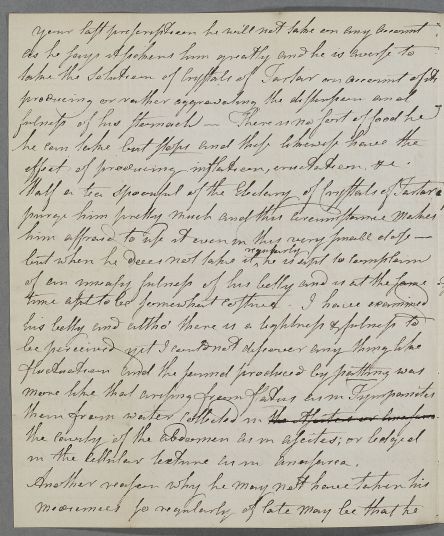 your last prescription he will not take on any account
as he says it sickens him greatly and he is averse to
take the Solution of Crystals of Tartar on account of its
producing or rather aggravating the dispepsia and
fulness of his stomach — There is no sort of food he
he can take but slops and these likewise have the
effect of producing inflation, eructation &c.
Half a tea spoonful of the Electary of Crystals of Tartar
purge him pretty much and this circumstance makes
him affraid to use it even in this very small dose —
but when he does not take it regularly he is apt to complain
of an uneasy fulness of his belly and is at the same
time apt to be somewhat costive. I have examined
his belly and altho there is a tightness & fulness to
be perceived yet I could not discover any thing like
fluctuation and the sound produced by patting was
more like that arising from flatus as in Tympanites
then from water collected in the Ascites or
the cavity of the abdomen as in ascites; or lodged
in the cellular texture as in anasarca.
Another reason why he may not have taken his
medicines so regularly of late may be that he